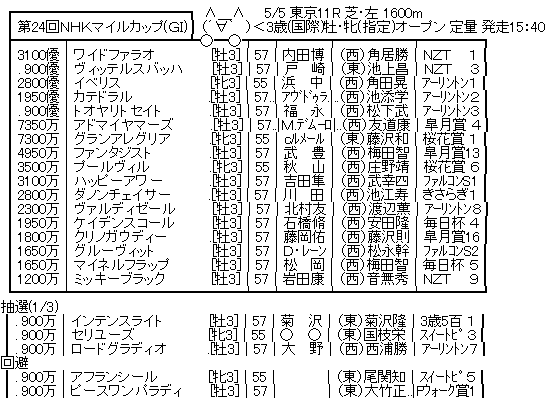 第24回NHKマイルカップ(GI) 5/5 東京11R 芝・左 1600m
<3歳(国際)牡・牝(指定)オープン 定量 発走15:40
3100優 ワイドファラオ [牡3] 57 内田博 (西)角居勝 NZT 1
.900優 ヴィッテルスバッハ [牡3] 57 戸崎 (東)池上昌 NZT 3
2800優 イベリス [牝3] 55 浜中 (西)角田晃 アーリントン1
1950優 カテドラル [牡3] 57 アヴドゥラ (西)池添学 アーリントン2
.900優 トオヤリトセイト [牡3] 57 福永 (西)松下武 アーリントン3
7350万 アドマイヤマーズ [牡3] 57 M.デムーロ (西)友道康 皐月賞 4
7300万 グランアレグリア [牝3] 55 ルメール (東)藤沢和 桜花賞 1
4950万 ファンタジスト [牡3] 57 武豊 (西)梅田智 皐月賞13
3500万 プールヴィル [牝3] 55 秋山 (西)庄野靖 桜花賞 6
3100万 ハッピーアワー [牡3] 57 吉田隼 (西)武幸四 ファルコンS1
2800万 ダノンチェイサー [牡3] 57 川田 (西)池江寿 きさらぎ1
2300万 ヴァルディゼール [牡3] 57 北村友 (西)渡辺薫 アーリントン8
1950万 ケイデンスコール [牡3] 57 石橋脩 (西)安田隆 毎日杯 4
1800万 クリノガウディー [牡3] 57 藤岡佑 (西)藤沢則 皐月賞16
1650万 グルーヴィット [牡3] 57 D・レーン (西)松永幹 ファルコンS2
1650万 マイネルフラップ [牡3] 57 松岡 (西)梅田智 毎日杯 5
1200万 ミッキーブラック [牡3] 57 岩田康 (西)音無秀 NZT 9
抽選(1/3)
.900万 インテンスライト [牡3] 57 菊沢 (東)菊沢隆 3歳5百 1
.900万 セリユーズ [牝3] 55 ○ ○ (東)国枝栄 スイートピ 3
.900万 ロードグラディオ [牡3] 57 大野 (西)西浦勝 アーリントン7
回避
.900万 アフランシール [牝3] 55 (東)尾関知 スイートピ 5
.900万 ピースワンパラディ [牡3] 57 (東)大竹正 Pウォーク賞1